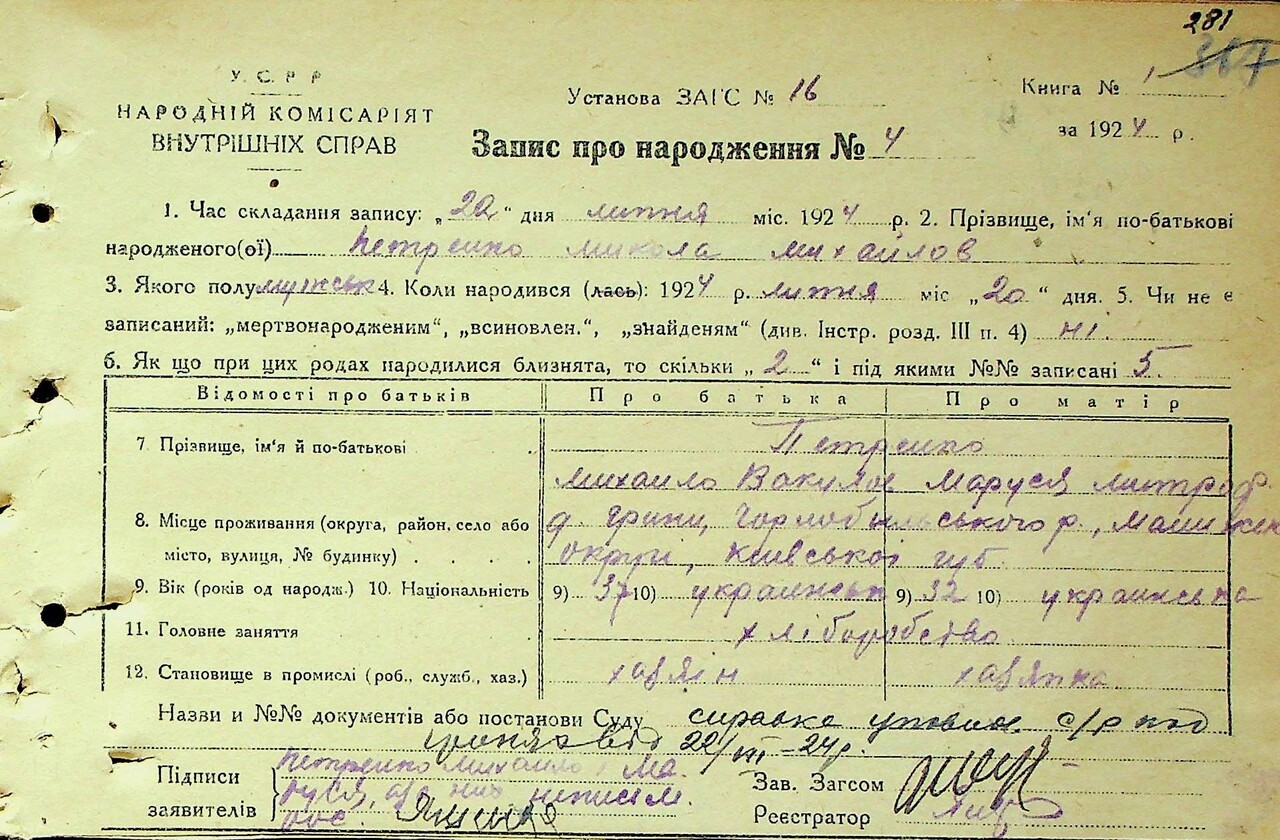 281
307
У. С. Р. Р.
НАРОДНІЙ КОМІСАРІЯТ
ВНУТРІШНІХ СПРАВ
Установа ЗАГС № 16
Книга № 1
за 1924 р.
Запис про народження № 4
1. Час складання запису: „22“ дня липня міс. 1924 р. 2. Прізвище, ім'я по-батькові
народженого(ої) Петренко Микола Михайлов
3. Якого полу мужськ 4. Коли народився (лась): 1924 р. липня міс „20“ дня. 5. Чи не є
записаний: „мертвонародженим“, „всиновлен.“, „знайденям“ (див. Інстр. розд. III п. 4) ні.
6. Як що при цих родах народилися близнята, то скільки „2“ і під якими №№ записані 5.
Відомості про батьків Про батька Про матір
7. Прізвище, ім'я й по-батькові Петренко
Михаило Вакулов Маруся Митроф.
8. Місце проживання (округа, район, село або
місто, вулиця, № будинку)
округи, Київської губ.
9. Вік (років од народж.) 10. Національність 9) 37 10) украинськ 9) 32 10) украинська
11. Головне заняття хліборобство
12. Становище в промислі (роб., служб., хаз.) хазяїн хазяйка
Назви и №№ документів або постанови Суду справка с/р
від 22/VII-24 р.
Підписи
заявителів
Петренко Михаило і Ма
руся, а за них неписьм.
Зав. Загсом
Реєстратор